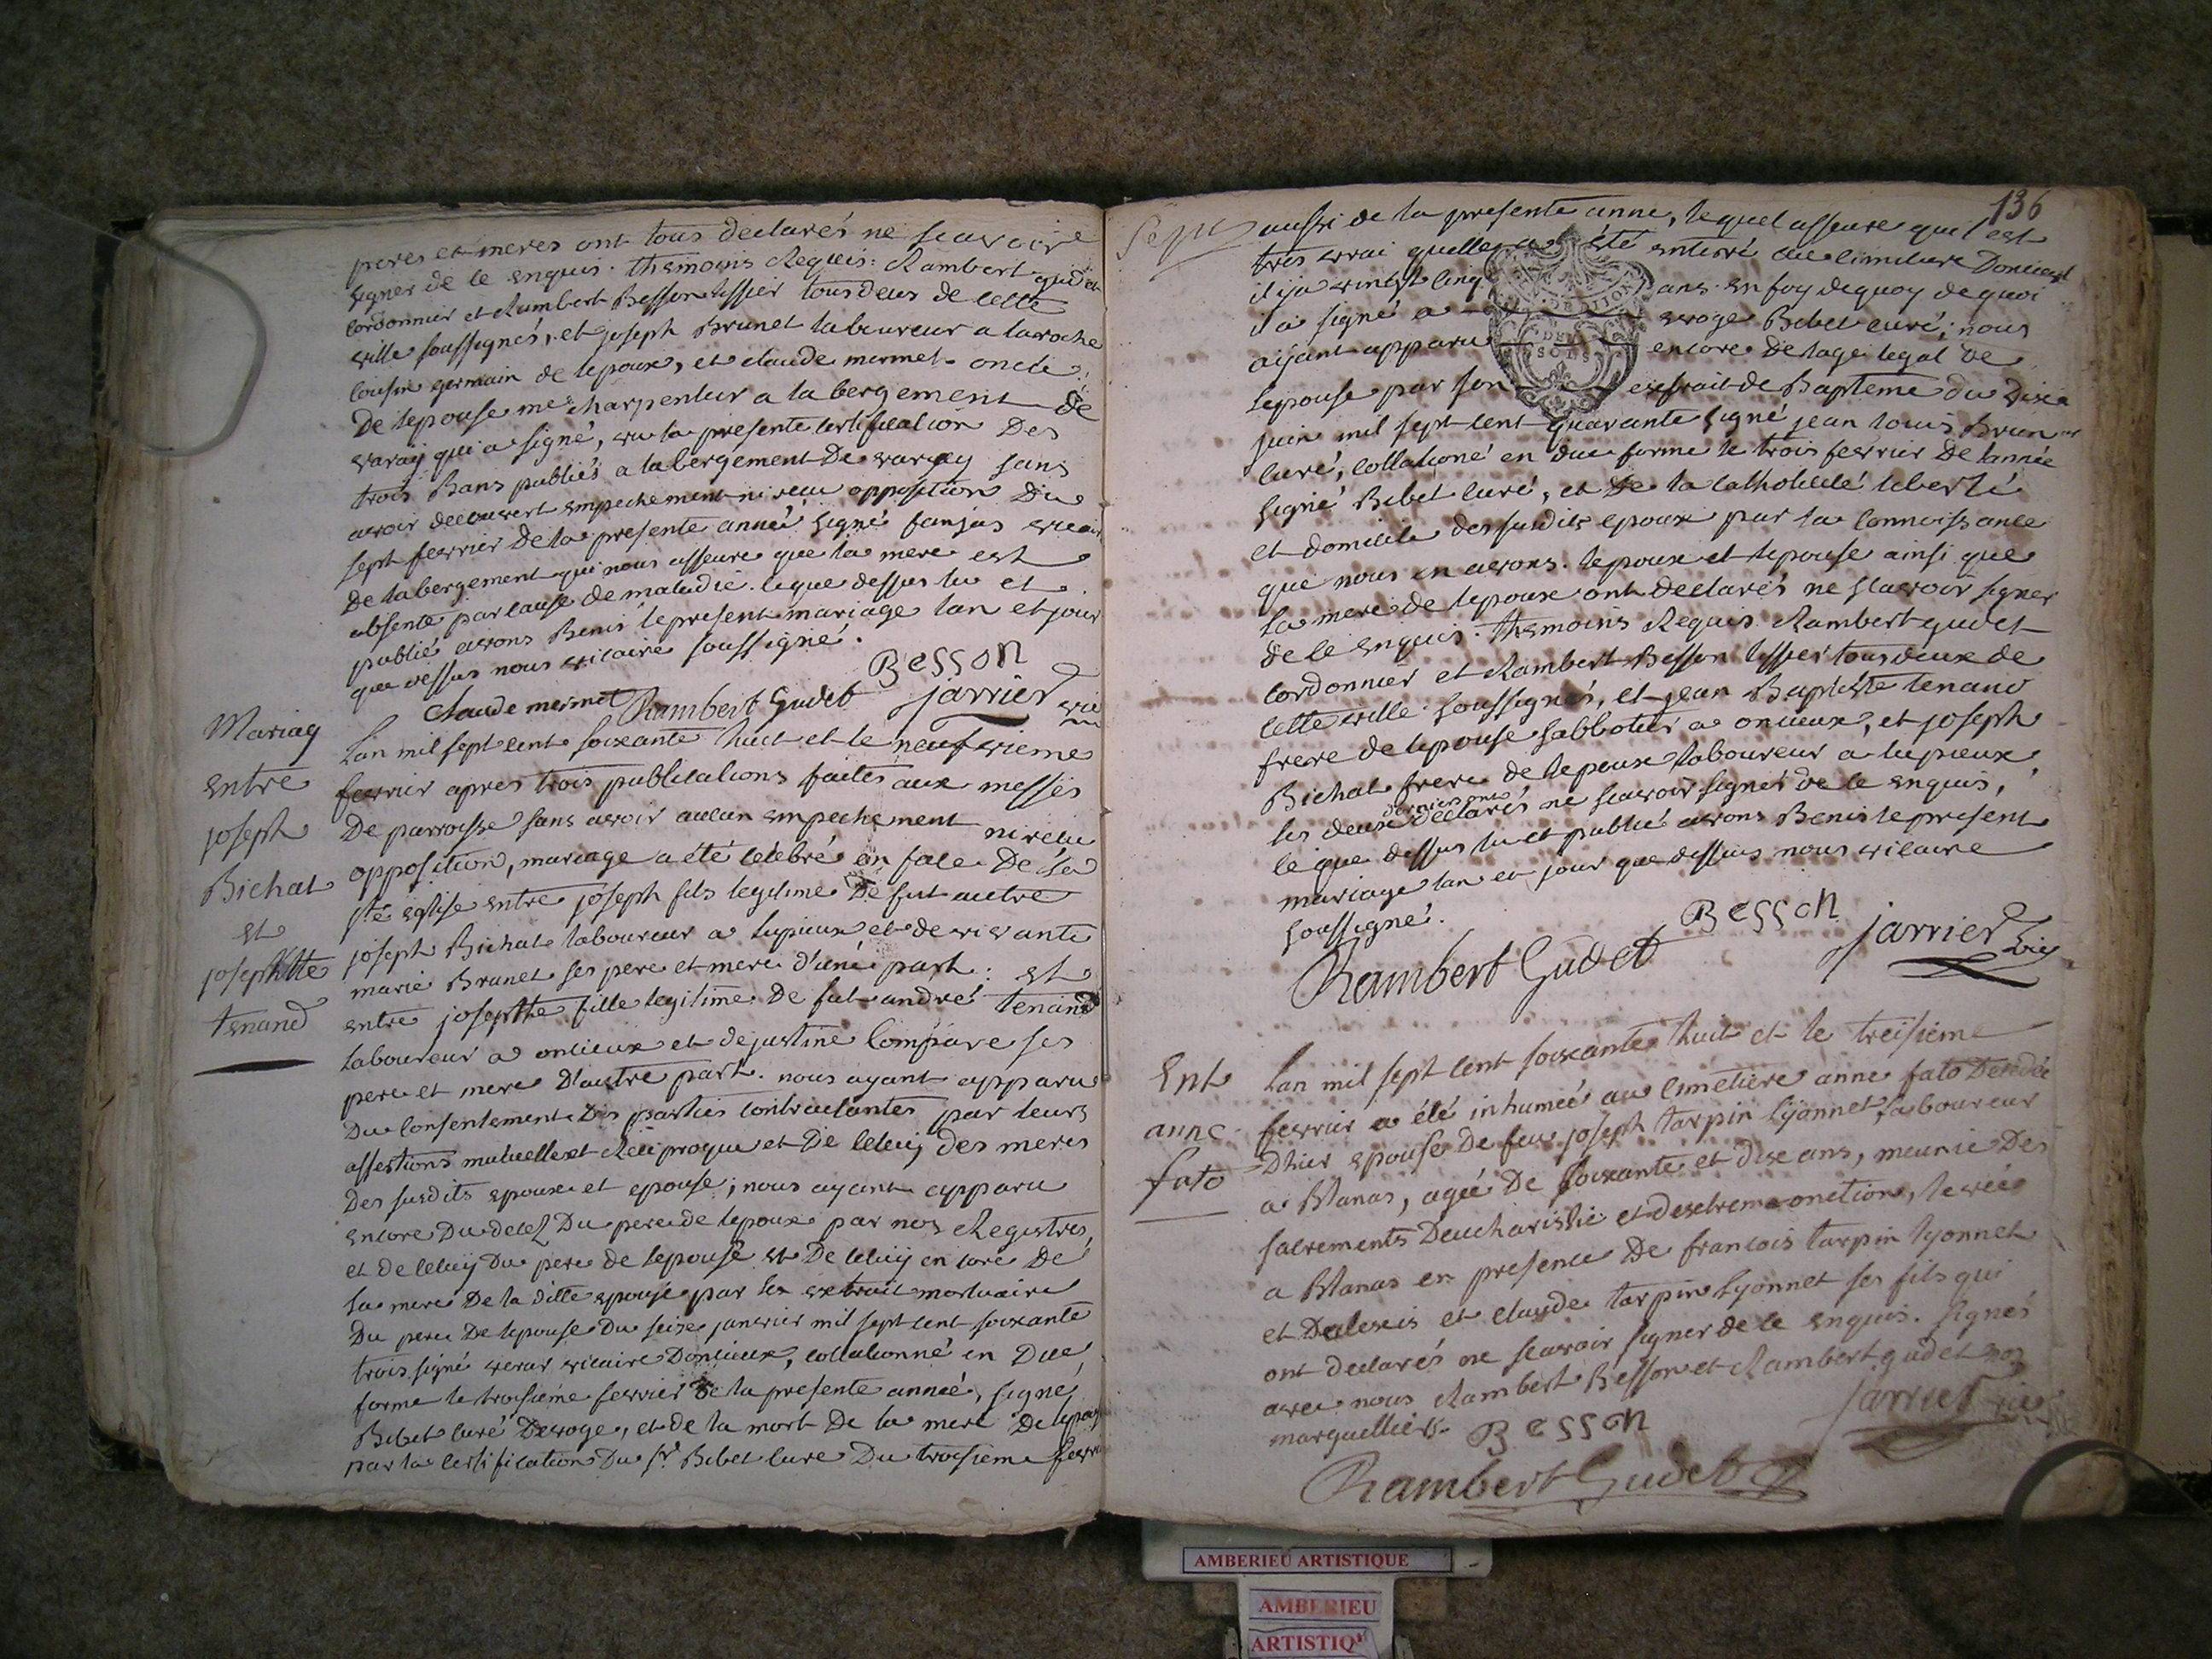 peres et meres ont tous declarés ne scavoire
signer de ce enquis. thsmoins Requis: Rambert gudet
cordonnier et Rambert Besson tissier tous deux de cette
ville soussignés, et joseph Brunet laboureur a laroche
cousin germain de lepoux, et claude mermet oncle
De lepouse me charpenteur a labergement de
varay qui a signé, vu la presente certification Des
trois Bans publiés a labergement De varey sans
avoir decouvert empechement ni reçu opposition Du
sept fevrier De la presente année signé fanjas vicair
De labergement qui nous asseure que la mere est
absente par cause de maladie. le que dessus lu et
publié avons Beni le present mariage lan et jour
que dessus nous vicaire soussigné.
Besson
Claude mermet Rambert Gudet jarrier vic
Mariag
entre
joseph
Bichat
et
josephtte
tenand
Lan mil sept cent soixante huit et le neufvieme
fevrier apres trois publications faites aux messes
De parroisse sans avoir aucun empechement ni reçu
opposition, mariage a été célébré en face De la
ste eglise entre joseph fils legitime De fut autre
joseph Bichat laboureur a lupieux et de vivante
marie Brunet ses pere et mere d'une part: et
entre josephte fille legitime De fut andré tenand
laboureur a oncieux et de justine Compare ses
pere et mere D'autre part. nous ayant apparu
Du Consentement Des parties contractantes par leurs
assertions mutuelle et Réciproque et De celuy des meres
Des susdits epoux et epouse; nous ayant apparu
encore Du decez Du pere de lepoux par nos Registres,
et de celuy Du pere de lepouse et De celuy encore De
la mere De la ditte epouse par les extrait mortuaire
Du pere De lepouse Du seize janvier mil sept cent soixante
trois signé vicaire Doncieux, collationné en Due
forme le troisieme fevrier de la presente année, signé
Bibet curé Devoge, et de la mort De la mere De lepouse
par la certification Du sr Bibet curé Du troisieme fevrier
136
aussi de la presente anne, lequel asseure quil est
très vrai quelle a été enterré au cimitiere Doncieux
il y a vingt cinq ans. en foy dequoy de quoi
il a signé a voge Bibet curé; nous
DE DIJON
DE
SOLS
ayant apparu encore De lage legal de
Lepouse par son extrait de Baptême du Dixe
juin mil sept cent quarante signé jean louis Brun
curé, collationé en due forme le trois fevrier De lannée
signé Bibet curé, et De la catholicité liberté
et domicile des susdits epoux par la connoissance
que nous en avons. lepoux et lepouse ainsi que
la mere de lepoux ont declarés ne scavoir signer
de ce enquis. thsmoins Requis Rambert gudet
cordonnier et Rambert Besson tissier tous deux de
cette ville soussignés, et jean Baptiste tenand
frere de lepouse sabbotier a oncieux, et joseph
Bichat frere de lepoux laboureur a lupieux
les deux derniers ont declarés ne scavoir signer de ce enquis,
le que dessus lu et publié avons Beni le present
mariage lan et jour que dessus nous vicaire
soussigné.
Besson
Rambert Gudet jarrier vic
Ent
anne
fato
Lan mil sept cent soixante huit et le treisieme
fevrier a été inhumée au cimetiere anne fato Decedée
Dhier epouse De feu joseph tarpin Lyonnet, laboureur
a Blanas, agée De soixante et dix ans, munie Des
sacrements Deucharistie et dextreme onction, levée
a Blanas en presence De francois tarpin lyonnet
et Dalexis et claude tarpin Lyonnet ses fils qui
ont declarés ne scavoir signer de ce enquis. signés
avec nous Rambert Besson et Rambert gudet nos
marguelliers. Besson jarrier vic
Rambert Gudet
AMBERIEU ARTISTIQUE
AMBERIEU
ARTISTIQ